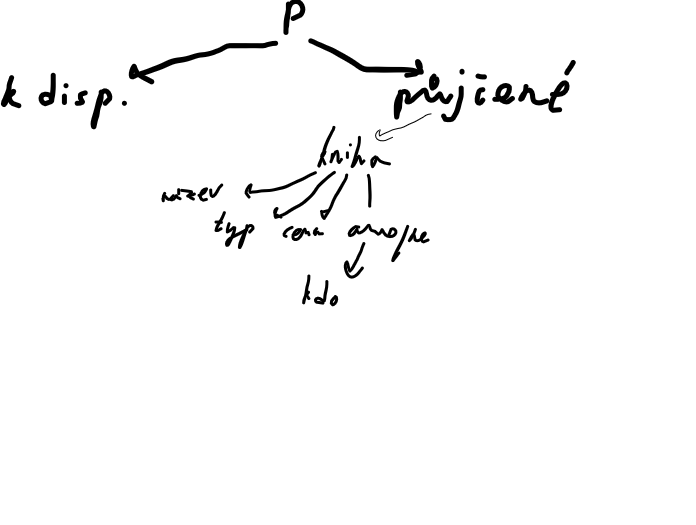 P
k disp. půjčené
kniha
název
typ cena ano/ne
kdo